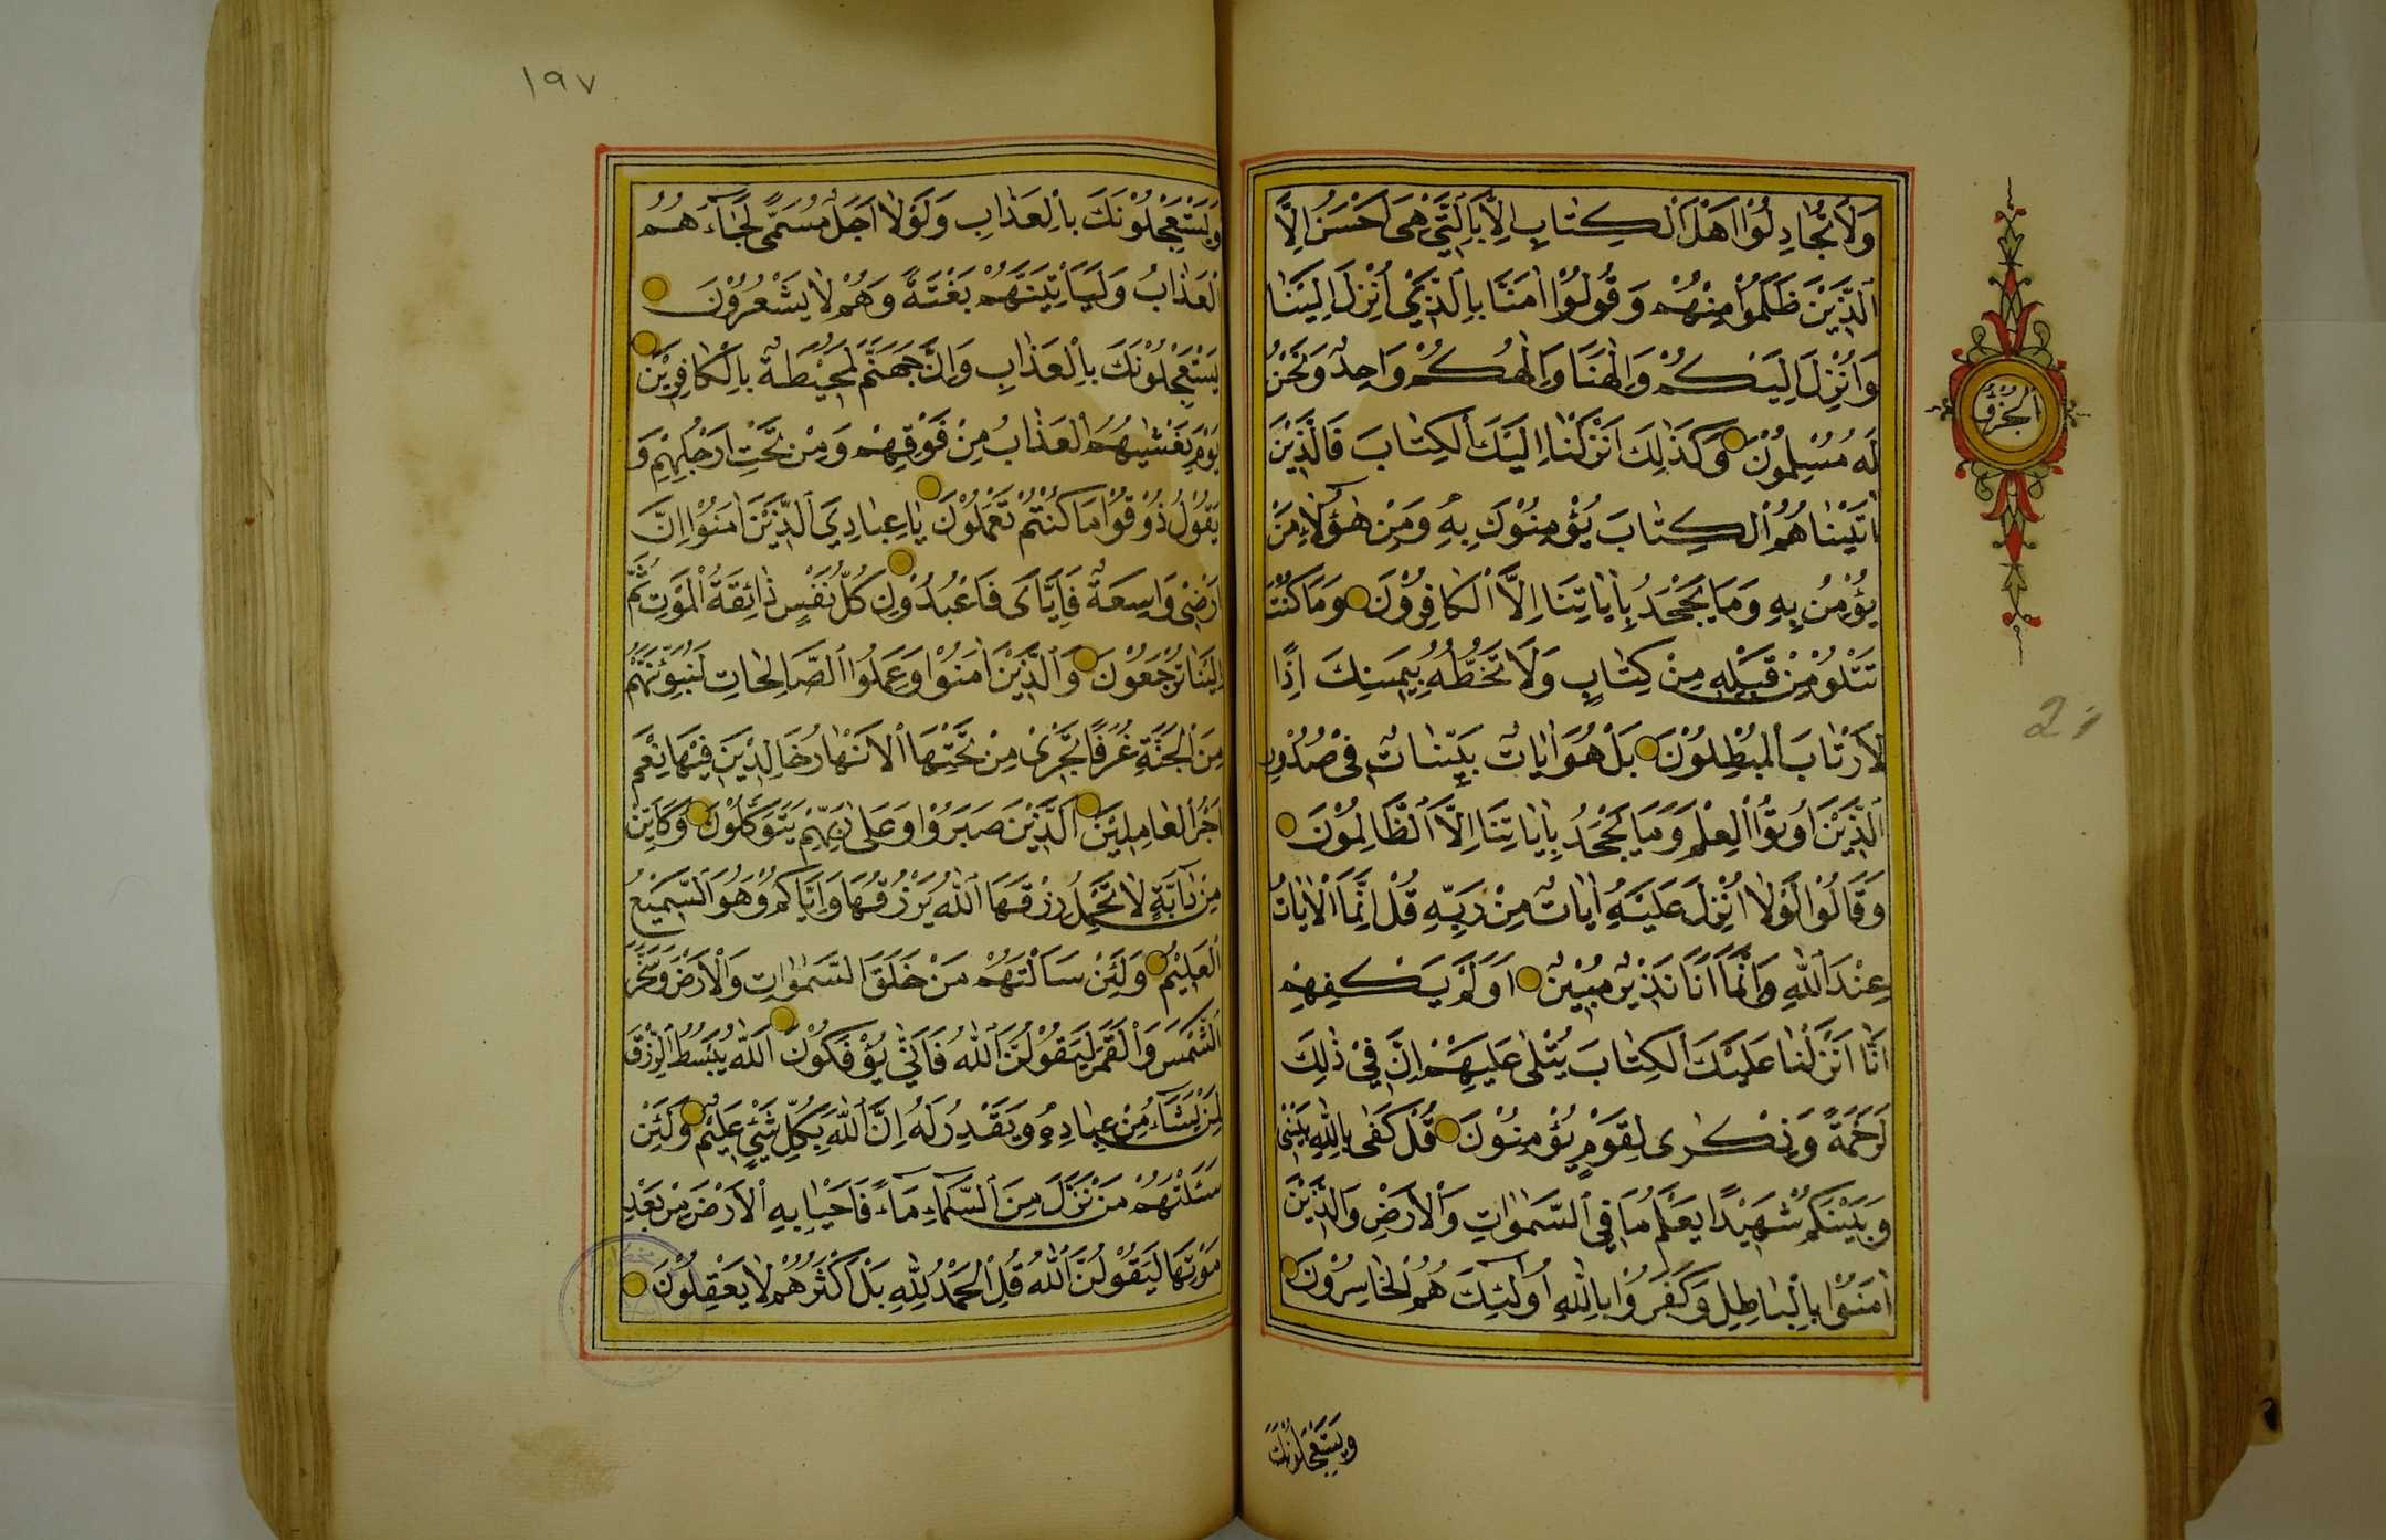 وَلَا تُجَادِلُوْا اَهْلَ الْكِتَابِ اِلَّا بِالَّتِيْ هِيَ اَحْسَنُ اِلَّا
الَّذِيْنَ ظَلَمُوْا مِنْهُمْ وَقُولُوْا اٰمَنَّا بِالَّذِيْ اُنْزِلَ اِلَيْنَا
وَاُنْزِلَ اِلَيْكُمْ وَاِلٰهُنَا وَاِلٰهُكُمْ وَاحِدٌ وَنَحْنُ
لَهُ مُسْلِمُوْنَ وَكَذٰلِكَ اَنْزَلْنَا اِلَيْكَ الْكِتَابَ فَالَّذِيْنَ
اٰتَيْنَاهُمُ الْكِتَابَ يُؤْمِنُوْنَ بِهِ وَمِنْ هٰؤُلَاءِ مَنْ
يُؤْمِنُ بِهِ وَمَا يَجْحَدُ بِاٰيَاتِنَا اِلَّا الْكَافِرُوْنَ وَمَا كُنْتَ
تَتْلُوْ مِنْ قَبْلِهِ مِنْ كِتَابٍ وَلَا تَخُطُّهُ بِيَمِينِكَ اِذًا
لَارْتَابَ الْمُبْطِلُوْنَ بَلْ هُوَ اٰيَاتٌ بَيِّنَاتٌ فِيْ صُدُوْرِ
الَّذِيْنَ اُوتُوا الْعِلْمَ وَمَا يَجْحَدُ بِاٰيَاتِنَا اِلَّا الظَّالِمُوْنَ
وَقَالُوْا لَوْلَا اُنْزِلَ عَلَيْهِ اٰيَاتٌ مِنْ رَبِّهِ قُلْ اِنَّمَا الْاٰيَاتُ
عِنْدَ اللّٰهِ وَاِنَّمَا اَنَا نَذِيْرٌ مُبِيْنٌ اَوَلَمْ يَكْفِهِمْ
اَنَّا اَنْزَلْنَا عَلَيْكَ الْكِتَابَ يُتْلٰى عَلَيْهِمْ اِنَّ فِيْ ذٰلِكَ
لَرَحْمَةً وَذِكْرٰى لِقَوْمٍ يُؤْمِنُوْنَ قُلْ كَفٰى بِاللّٰهِ بَيْنِيْ
وَبَيْنَكُمْ شَهِيْدًا يَعْلَمُ مَا فِي السَّمٰوَاتِ وَالْاَرْضِ وَالَّذِيْنَ
اٰمَنُوْا بِالْبَاطِلِ وَكَفَرُوْا بِاللّٰهِ اُولٰئِكَ هُمُ الْخَاسِرُوْنَ
وَيَسْتَعْجِلُوْنَكَ
الجزؤ
١٩٧
وَيَسْتَعْجِلُوْنَكَ بِالْعَذَابِ وَلَوْلَا اَجَلٌ مُسَمًّى لَجَاءَهُمُ
الْعَذَابُ وَلَيَأْتِيَنَّهُمْ بَغْتَةً وَهُمْ لَا يَشْعُرُوْنَ
يَسْتَعْجِلُوْنَكَ بِالْعَذَابِ وَاِنَّ جَهَنَّمَ لَمُحِيْطَةٌ بِالْكَافِرِيْنَ
يَوْمَ يَغْشٰيهُمُ الْعَذَابُ مِنْ فَوْقِهِمْ وَمِنْ تَحْتِ اَرْجُلِهِمْ وَ
يَقُوْلُ ذُوْقُوْا مَا كُنْتُمْ تَعْمَلُوْنَ يَا عِبَادِيَ الَّذِيْنَ اٰمَنُوْا اِنَّ
اَرْضِيْ وَاسِعَةٌ فَاِيَّايَ فَاعْبُدُوْنِ كُلُّ نَفْسٍ ذَائِقَةُ الْمَوْتِ ثُمَّ
اِلَيْنَا تُرْجَعُوْنَ وَالَّذِيْنَ اٰمَنُوْا وَعَمِلُوا الصَّالِحَاتِ لَنُبَوِّئَنَّهُمْ
مِنَ الْجَنَّةِ غُرَفًا تَجْرِيْ مِنْ تَحْتِهَا الْاَنْهَارُ خَالِدِيْنَ فِيْهَا نِعْمَ
اَجْرُ الْعَامِلِيْنَ الَّذِيْنَ صَبَرُوْا وَعَلٰى رَبِّهِمْ يَتَوَكَّلُوْنَ وَكَاَيِّنْ
مِنْ دَابَّةٍ لَا تَحْمِلُ رِزْقَهَا اللّٰهُ يَرْزُقُهَا وَاِيَّاكُمْ وَهُوَ السَّمِيْعُ
الْعَلِيْمُ وَلَئِنْ سَاَلْتَهُمْ مَنْ خَلَقَ السَّمٰوَاتِ وَالْاَرْضَ وَسَخَّرَ
الشَّمْسَ وَالْقَمَرَ لَيَقُوْلُنَّ اللّٰهُ فَاَنّٰى يُؤْفَكُوْنَ اَللّٰهُ يَبْسُطُ الرِّزْقَ
لِمَنْ يَشَاءُ مِنْ عِبَادِهِ وَيَقْدِرُ لَهُ اِنَّ اللّٰهَ بِكُلِّ شَيْئٍ عَلِيْمٌ وَلَئِنْ
سَئَلْتَهُمْ مَنْ نَزَّلَ مِنَ السَّمَاءِ مَاءً فَاَحْيَا بِهِ الْاَرْضَ مِنْ بَعْدِ
مَوْتِهَا لَيَقُوْلُنَّ اللّٰهُ قُلِ الْحَمْدُ لِلّٰهِ بَلْ اَكْثَرُهُمْ لَا يَعْقِلُوْنَ